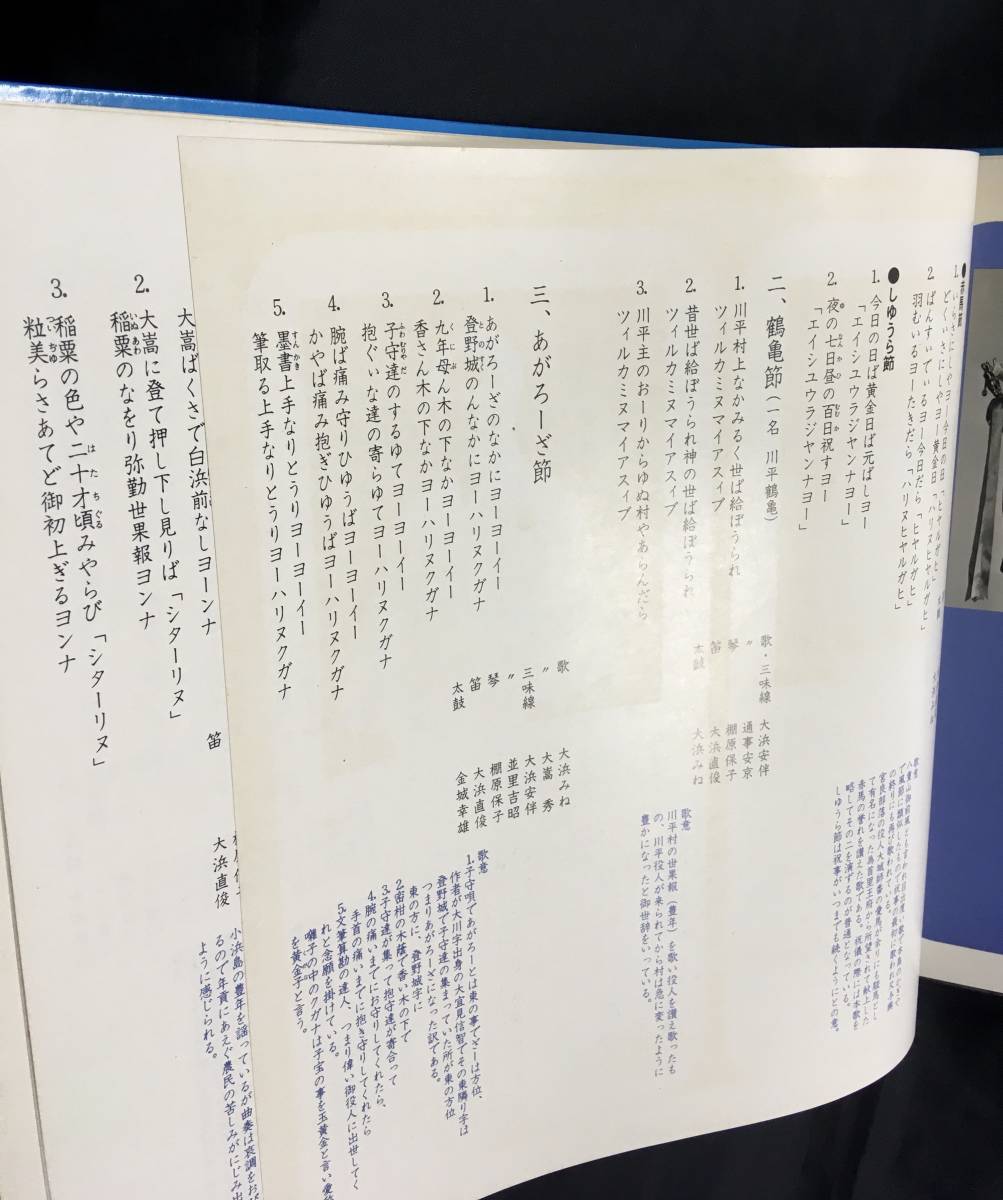 ●赤馬節
1. いらさにしやヨー今日の日「ヒヤルガヒ」
どくいさにしやヨー黄金日「ハリヌヒヤルガヒ」
2. ばんすいでいるヨー今日だら「ヒヤルガヒ」
羽むいるヨーたきだら「ハリヌヒヤルガヒ」
●しゆうら節
1. 今日の日ば黄金日ば元ばしヨー
「エイシユウラジヤンナヨー」
2. 夜の七日昼の百日祝すヨー
「エイシユウラジヤンナヨー」
歌意
宮良部落の役人大城師番の愛馬が余りにも駿馬とし
て有名になった為首里王府から所望されて献上した
赤馬の誉れを讃えた歌である。祝儀の際には本歌を
略してその二を演ずるのが普通となっている。
しゆうら節は祝事がいつまでも続くようにとの意。
二、鶴亀節（一名 川平鶴亀）
1. 川平村上なかみるく世ば給ぼうられ
ツィルカミヌマイアスィブ
2. 昔世ば給ぼうられ神の世ば給ぼうられ
ツィルカミヌマイアスィブ
3. 川平主のおーりからゆぬ村やあらんだら
ツィルカミヌマイアスィブ
歌・三味線 大浜安伴
〃 通事安京
琴 棚原保子
笛 大浜直俊
太鼓 大浜みね
歌意
川平村の世果報（豊年）を歌い役人を讃え歌ったも
の、川平役人が来られてから村は急に変ったように
豊かになったと御世辞をいっている。
三、あがろーざ節
1. あがろーざのなかにヨーヨーイー
登野城のんなかにヨーハリヌクガナ
2. 九年母ん木の下なかヨーヨーイー
香さん木の下なかヨーハリヌクガナ
3. 子守達のするゆてヨーヨーイー
抱ぐぃな達の寄らゆてヨーハリヌクガナ
4. 腕ば痛み守りひゆうばヨーヨーイー
かやば痛み抱ぎひゆうばヨーハリヌクガナ
5. 墨書上手なりとうりヨーヨーイー
筆取る上手なりとうりヨーハリヌクガナ
歌 大浜みね
〃 大嵩 秀
三味線 大浜安伴
〃 並里吉昭
琴 棚原保子
笛 大浜直俊
太鼓 金城幸雄
歌意
1. 子守唄であがろーとは東の事でざーは方位、
作者が大川字出身の大宜見信智でその東隣り字は
登野城で子守達の集まっていた所が東の方位
つまりあがろーざになった訳である。
東の方に、登野城字に
2. 密柑の木蔭で香い木の下で
3. 子守達が集って抱守達が寄合って
4. 腕の痛いまでにお守りしてくれたら、
手首の痛いまでに抱き守りしてくれたら
5. 文筆算勘の達人、つまり偉い御役人に出世してく
れと念願を掛けている。
囃子の中のクガナは子宝の事を玉黄金と言い愛
を黄金子と言う。
大嵩ばくさで白浜前なしヨーンナ
2. 大嵩に登て押し下し見りば「シターリヌ」
稲粟のなをり弥勤世果報ヨンナ
3. 稲粟の色や二十才頃みやらび「シターリヌ」
粒美らさあてど御初上ぎるヨンナ
笛 大浜直俊
小浜島の豊年を謡っているが曲奏は哀調をお
るので年貢にあえぐ農民の苦しみがにじみ出
ように感じられる。